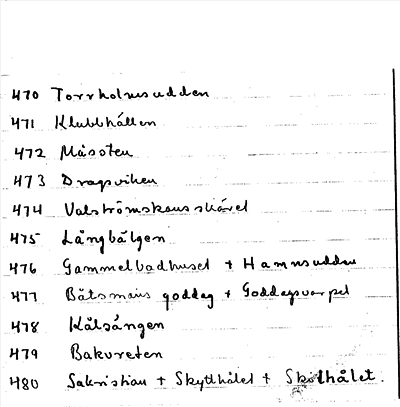 470 Torrholmsudden
471 Klubbhällen
472 Måsoten
473 Dragsviken
474 Valströmskansskäret
475 Långbålgen
476 Gammelbadhuset + Hamnsudden
477 Båtsmans goddag + Goddagsvarpet
478 Kålsängen
479 Bakvreten
480 Sakristian + Skytthålet + Skithålet.